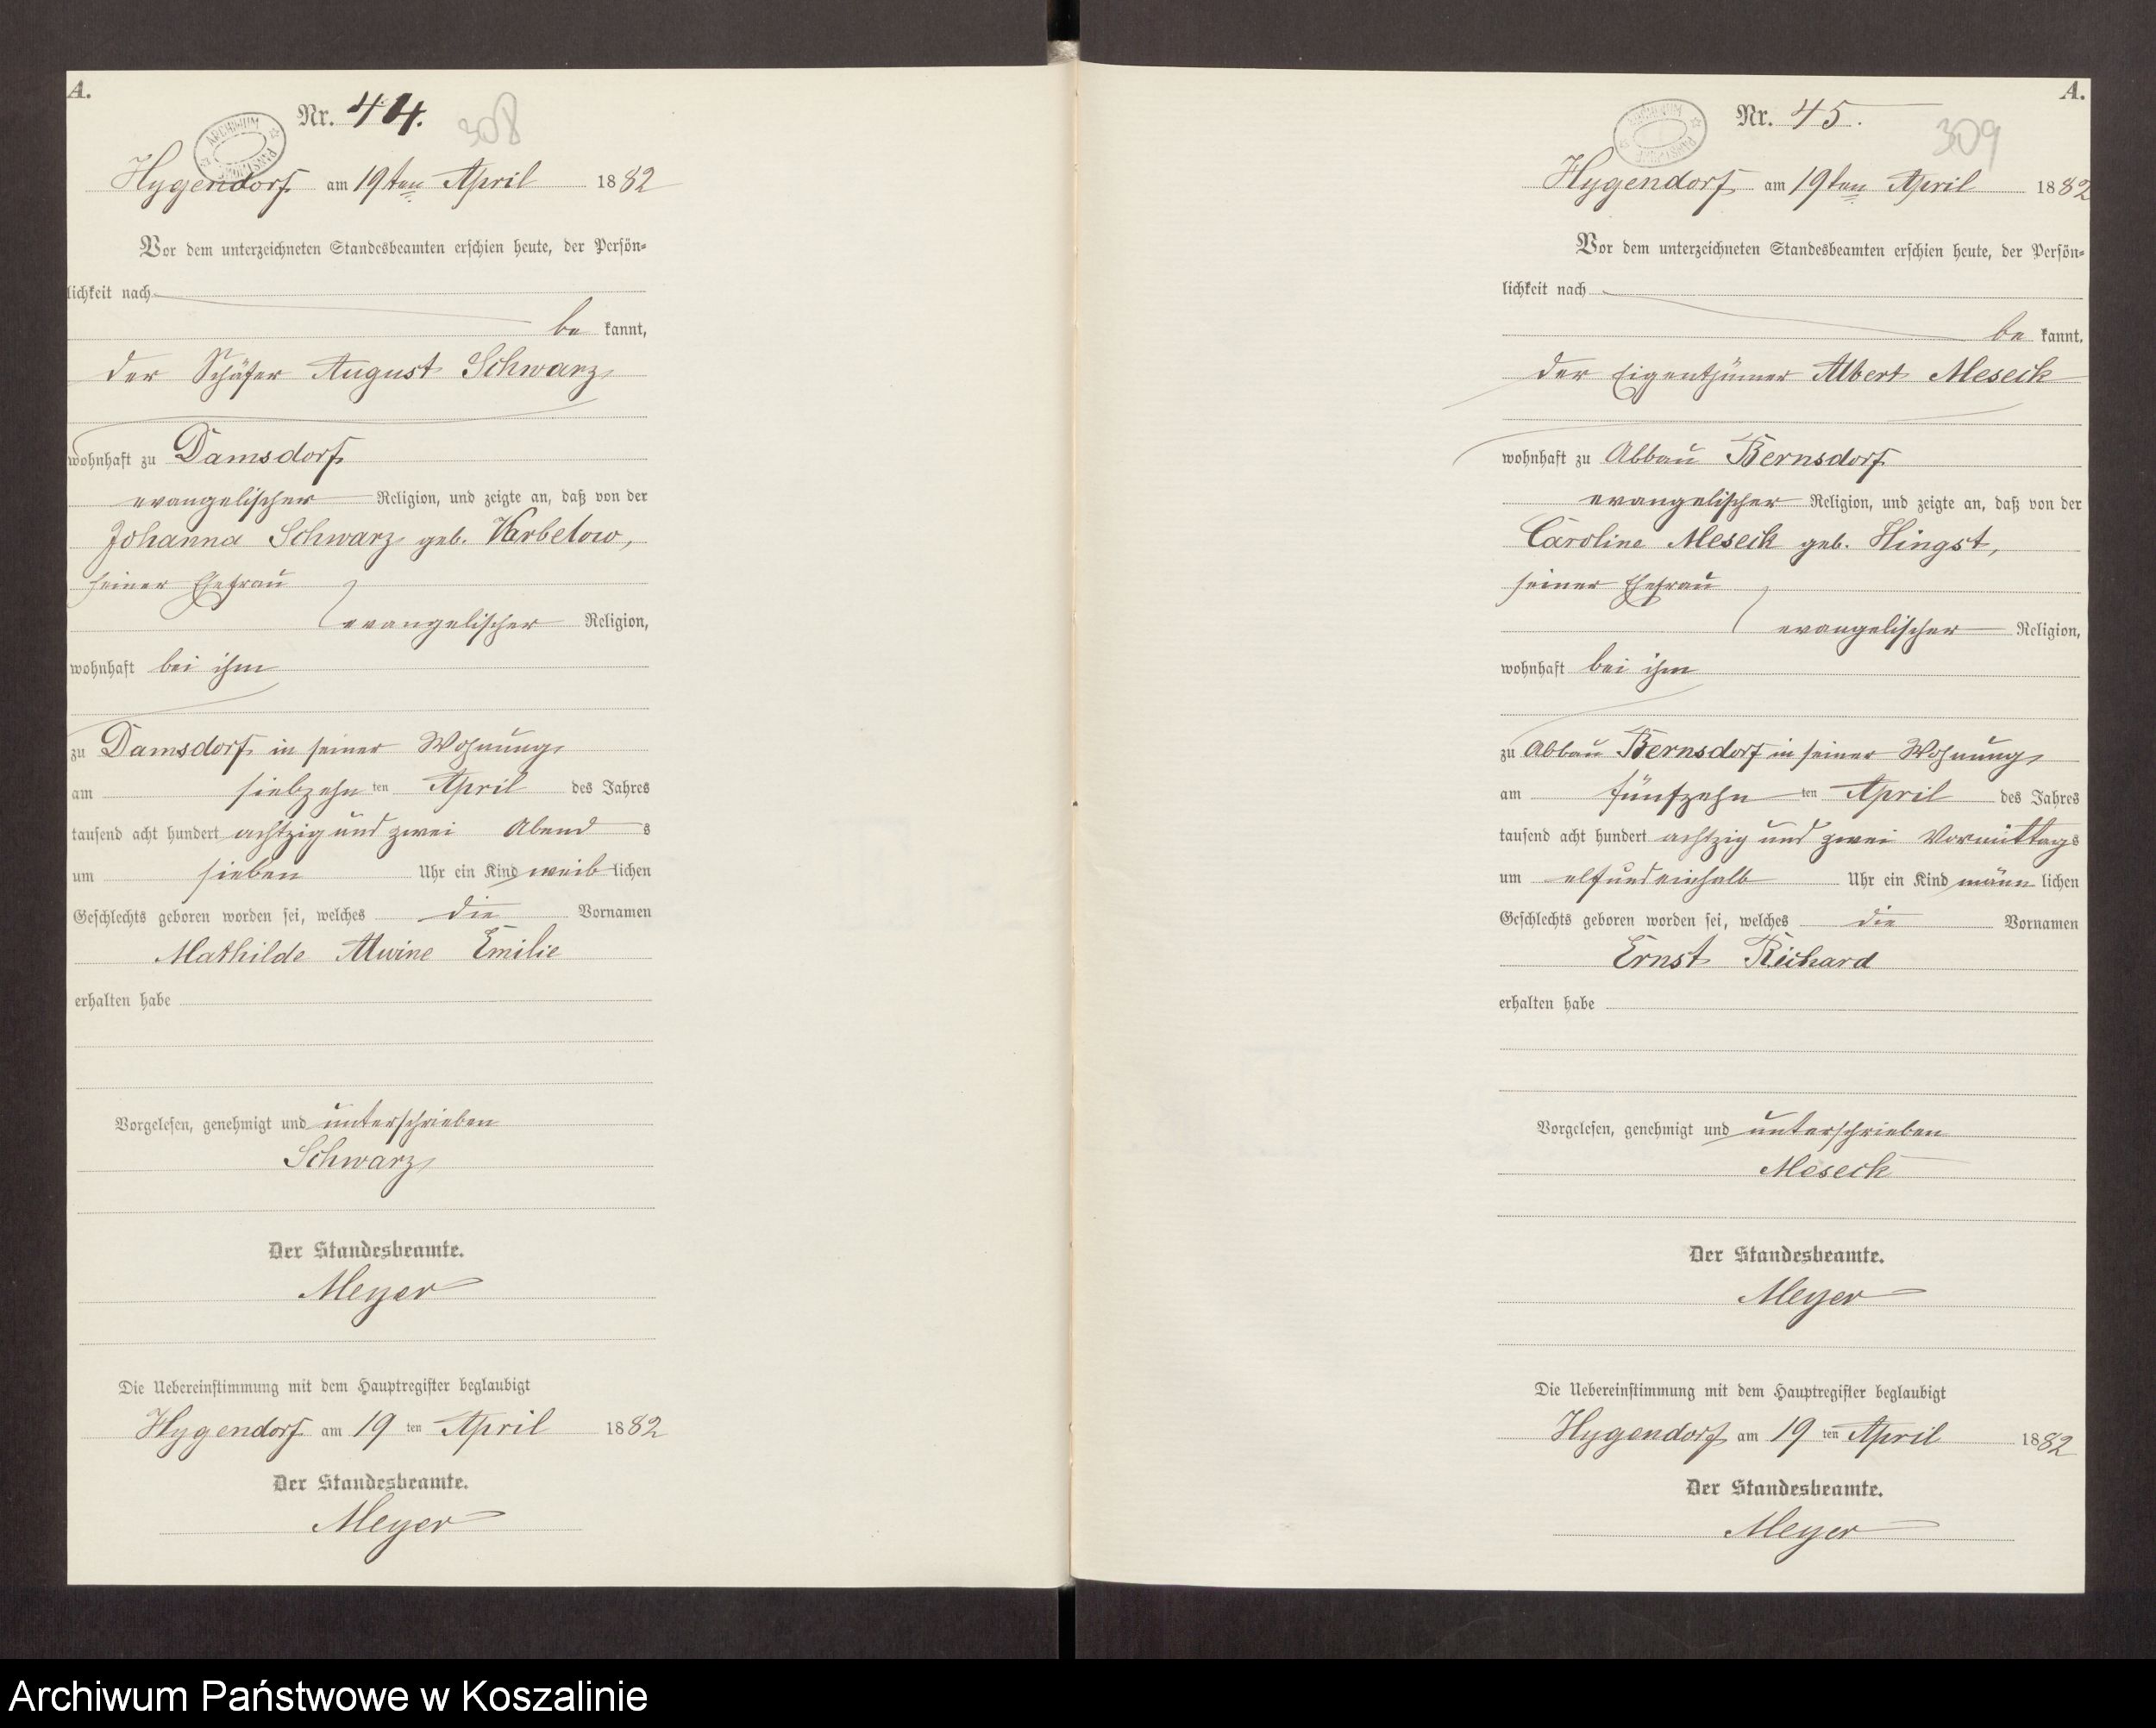 A.
Nr. 44.
308
ARCHIWUM PAŃSTWOWE
Hygendorf am 19ten April 1882
Vor dem unterzeichneten Standesbeamten erschien heute, der Persön-
lichkeit nach
be kannt,
der Schäfer August Schwarz
wohnhaft zu Damsdorf
evangelischer Religion, und zeigte an, daß von der
Johanna Schwarz geb. Varbelow,
seiner Ehefrau
evangelischer Religion,
wohnhaft bei ihm
zu Damsdorf in seiner Wohnung
am siebzehn ten April des Jahres
tausend acht hundert achtzig und zwei Abend s
um sieben Uhr ein Kind weib lichen
Geschlechts geboren worden sei, welches die Vornamen
Mathilde Alwine Emilie
erhalten habe
Vorgelesen, genehmigt und unterschrieben
Schwarz
Der Standesbeamte.
Meyer
Die Uebereinstimmung mit dem Hauptregister beglaubigt
Hygendorf am 19 ten April 1882
Der Standesbeamte.
Meyer
A.
Nr. 45.
309
Hygendorf am 19ten April 1882
Vor dem unterzeichneten Standesbeamten erschien heute, der Persön-
lichkeit nach
be kannt,
der Eigenthümer Albert Meseck
wohnhaft zu Abbau Bernsdorf
evangelischer Religion, und zeigte an, daß von der
Caroline Meseck geb. Hingst,
seiner Ehefrau
evangelischer Religion,
wohnhaft bei ihm
zu Abbau Bernsdorf in seiner Wohnung
am fünfzehn ten April des Jahres
tausend acht hundert achtzig und zwei Vormittags
um elf und einhalb Uhr ein Kind männ lichen
Geschlechts geboren worden sei, welches die Vornamen
Ernst Richard
erhalten habe
Vorgelesen, genehmigt und unterschrieben
Meseck
Der Standesbeamte.
Meyer
Die Uebereinstimmung mit dem Hauptregister beglaubigt
Hygendorf am 19 ten April 1882
Der Standesbeamte.
Meyer
Archiwum Państwowe w Koszalinie